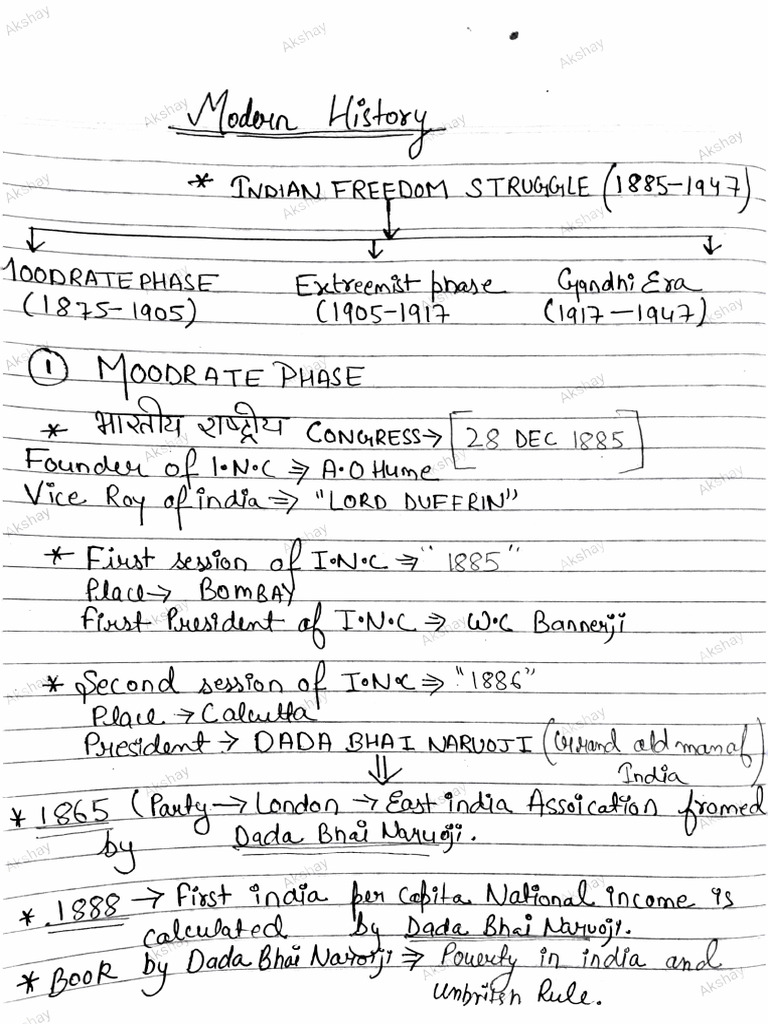 Modern History
* INDIAN FREEDOM STRUGGLE (1885-1947)
MOODRATE PHASE Extreemist phase Gandhi Era
(1875-1905) (1905-1917 (1917-1947)
① MOODRATE PHASE
* भारतीय राष्ट्रीय CONGRESS→ [28 DEC 1885]
Founder of I.N.C ⇒ A.O Hume
Vice Roy of india ⇒ "LORD DUFFRIN"
* First session of I.N.C ⇒ "1885"
Place → BOMBAY
First President of I.N.C ⇒ W.C Bannerji
* Second session of I.N.C ⇒ "1886"
Place → Calcutta
President → DADA BHAI NARUOJI (Grrand old man of
India
* 1865 (Party → London → East india Assoication fromed
by Dada Bhai Naruoji.
* 1888 → First india per capita National income is
calculated by Dada Bhai Naruoji.
* BOOK by Dada Bhai Narorji ⇒ Pouerty in india and
unbritsh Rule.
Akshay